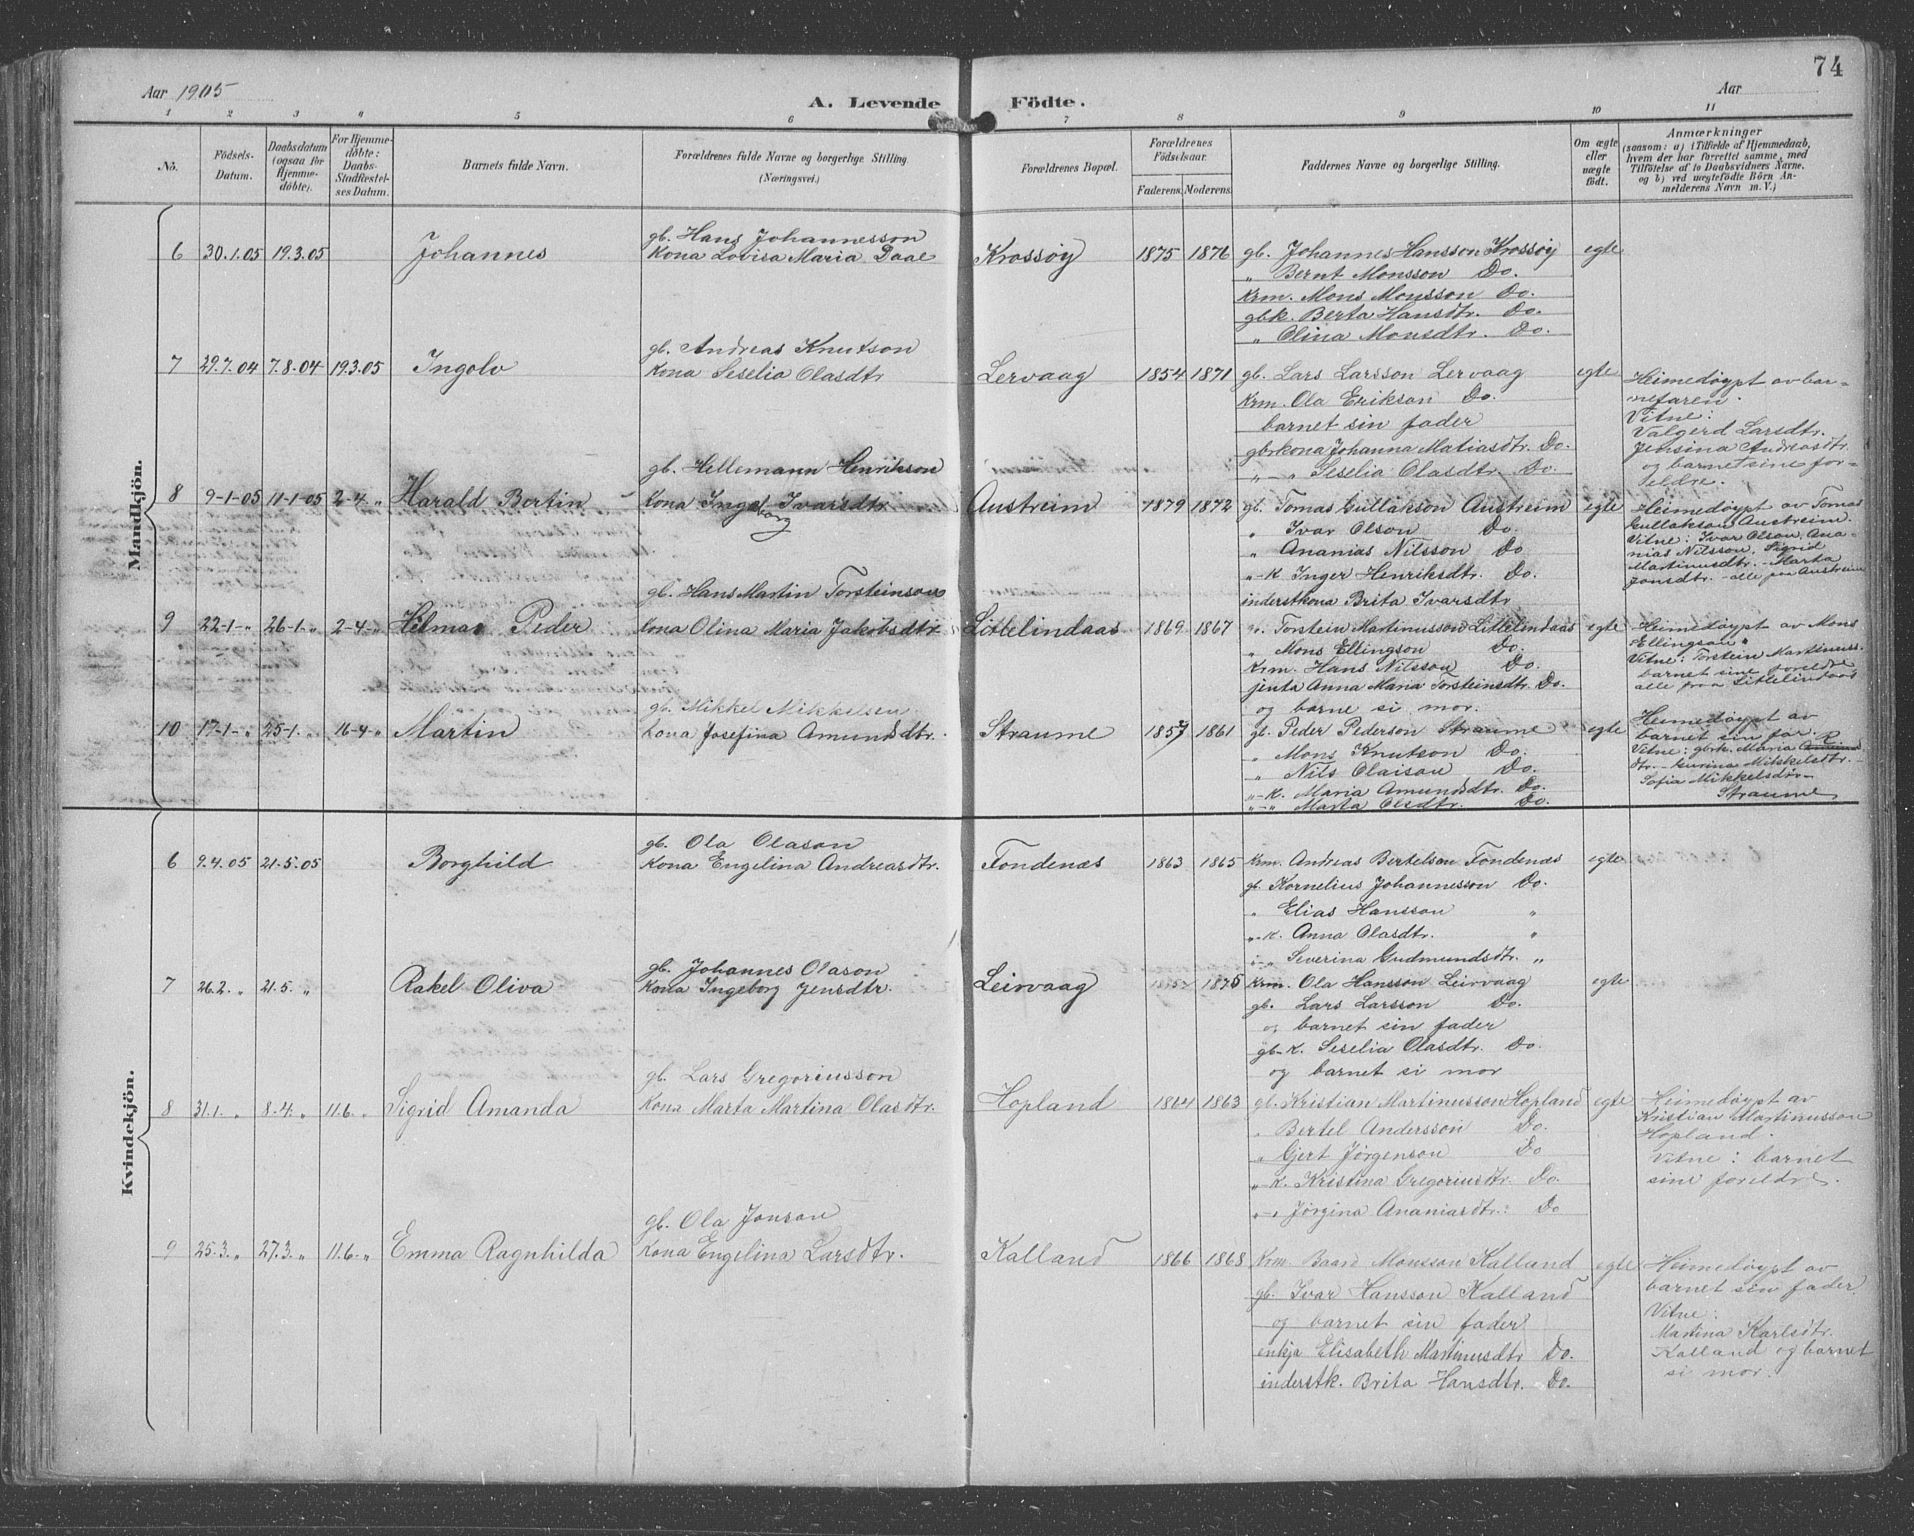 74
Aar 1905
A. Levende Födte.
Aar
1 2 3 4 5 6 7 8 9 10 11
No.
Födsels-
Datum.
Daabsdatum
(ogsaa for
Hjemme-
döbte).
For Hjemme-
döbte:
Daabs-
Stadfæstel-
ses Datum.
Barnets fulde Navn.
Forældrenes fulde Navne og borgerlige Stilling.
(Næringsvei.)
Forældrenes Bopæl.
Forældrenes
Födselsaar.
Faderens. Moderens.
Faddernes Navne og borgerlige Stilling.
Om ægte
eller
uægte
födt.
Anmærkninger
(saasom: a) i Tilfælde af Hjemmedaab,
hvem der har forrettet samme, med
Tilföielse af to Daabsvidners Navne.
og b) ved uægtefödte Börn An-
melderens Navn m. V.)
Mandkjön.
6 30.1.05 19.3.05 Johannes
gb. Hans Johannesson
Kona Lovisa Maria Daae
Krossöy 1875 1876
gb. Johannes Hansson Krossöy
„ Bernt Monsson Do.
Krm. Mons Monsson Do.
gbk. Berta Hansdtr. Do.
„ Olina Monsdtr. Do.
egte
7 29.7.04 7.8.04 19.3.05 Ingolv
gb. Andreas Knutson
Kona Seselia Olasdtr
Lervaag 1854 1871
gb. Lars Larsson Lervaag
Krm. Ola Erikson Do.
barnet sin fader
gbrkona Johanna Matiasdtr. Do.
„-„ Seselia Olasdtr. Do.
egte
Heimedöypt av bar-
nefaren.
Vitne:
Valgerd Larsdtr.
Jensina Andreasdtr.
og barnet sine for-
eldre.
8 9-1-05 11-1-05 2-4-„ Harald Bortin
gb. Hellemann Henrikson
Kona Ingeborg Ivarsdtr
Austreim 1879 1872
gb. Tomas Gullakson Austreim
„ Ivar Olson Do.
„ Ananias Nilsson Do
„-K Inger Henriksdtr. Do.
inderstkona Brita Ivarsdtr
egte
Heimedöypt av Tomas
Gullakson Austreim.
Vitne: Ivar Olson, Ana-
nias Nilsson, Sigrid
Martinusdtr. - Marta
Jonsdtr. - alle paa Austreim
9 22-1-„ 26-1-„ 2-4-„ Hilmar Peder
gb. Hans Martin Torsteinson
Kona Olina Maria Jakobsdtr
Littelindaas 1869 1867
gb. Torstein Martinusson Littelindaas
„ Mons Ellingson Do.
Krm. Hans Nilsson Do.
jenta Anna Maria Torsteinsdtr. Do.
og barne si mor.
egte
Heimedöypt av Mons
Ellingson „
Vitne: Torstein Martinuss.
barnet sine foreldre
alle fraa Littelindaas
10 17-1-„ 25-1-„ 16-4-„ Martin
gb. Mikkel Mikkelsen
Kona Josefina Amundsdtr.
Straume 1857 1861
gb. Peder Pederson Straume
„ Mons Knutson Do.
„ Nils Olaison Do.
„-K. Maria Amundsdtr. Do.
„-„ Marta Olsdtr. Do.
egte
Heimedöypt av
barnet sin far.
Vitne: gbrk. Maria
dtr. - Gurina Mikkelsdtr. -
Sofia Mikkelsdtr -
Straume
Kvindekjön.
6 9.4.05 21.5.05 Borghild
gb. Ola Olason
Kona Engelina Andreasdtr.
Fondenæs 1863 1865
Krm. Andreas Bertelson Fondenæs
gb. Kornelius Johannesson Do.
„ Elias Hansson „
„-K. Anna Olasdtr. „
„-„ Severina Gudmundsdtr. „
egte
7 26.2. „ 21.5. „ Rakel Oliva
gb. Johannes Olason
Kona Ingeborg Jensdtr.
Leirvaag 1875
Krm. Ola Hansson Leirvaag
gb. Lars Larsson Do.
og barnet sin fader
gb-K. Seselia Olasdtr. Do.
og barnet si mor
egte
8 31.1. „ 8.4. „ 11.6. „ Sigrid Amanda
gb. Lars Gregoriusson
Kona Marta Martina Olasdtr.
Hopland 1864 1863
gb. Kristian Martinusson Hopland
„ Bertel Andersson Do.
„ Gjert Jörgenson Do
„-K. Kristina Gregoriusdtr. Do.
„-„ Jörgina Ananiasdtr. Do
egte
Heimedöypt av
Kristian Martinusson
Hopland.
Vitne: barnet
sine foreldre.
9 25.3. „ 27.3. „ 11.6. „ Emma Ragnhilda
gb. Ola Jonson
Kona Engelina Larsdtr.
Kalland 1866 1868
Krm. Baard Monsson Kalland
gb. Ivar Hansson Kalland
og barnet sin fader
enkja Elisabeth Martinusdtr Do.
inderstk. Brita Hansdtr. Do.
egte
Heimedöypt av
barnet sin fader
Vitne:
Martina Karlsdtr.
Kalland og barnet
si mor.